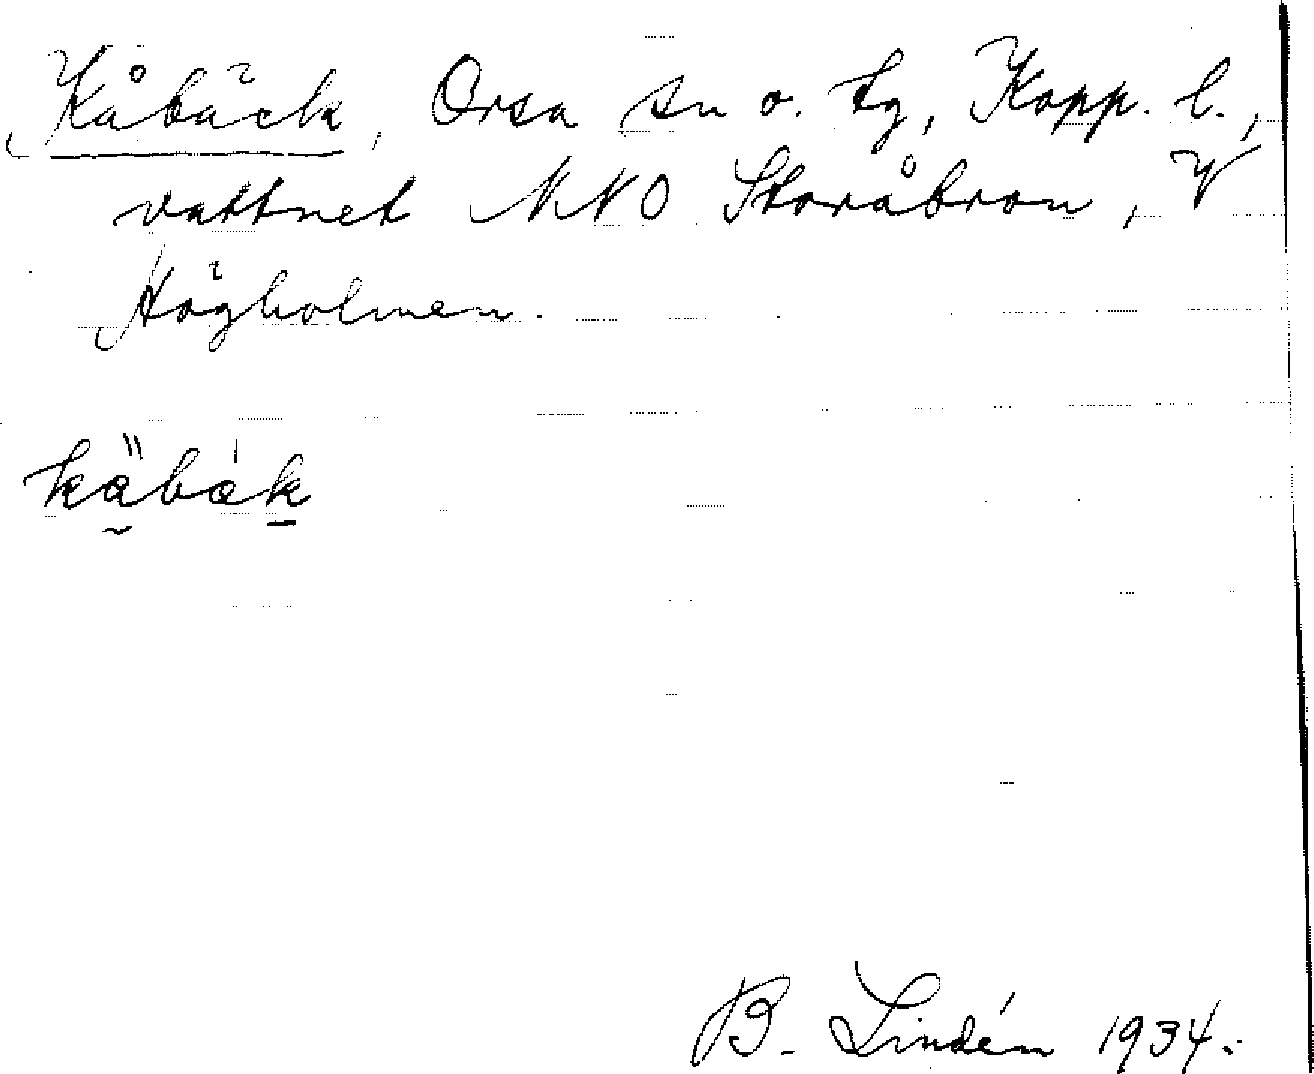 Kåbäck, Orsa sn o. tg, Kopp. l.,
vattnet NNO Storåbron, V
Högholmen.
käbäk
B. Lindén 1934.